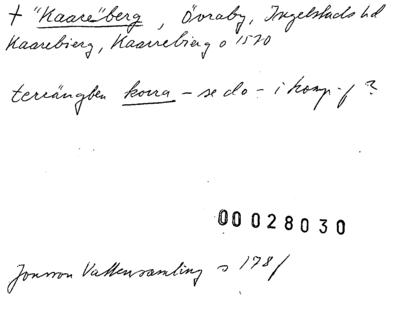 † "Kaare"berg, Övraby, Ingelstads hd
Kaarebierg, Kaarrebierg o 1570
terrängbet korra - se do - i komp.-f?
00028030
Jonsson Vattensamling s 178 f